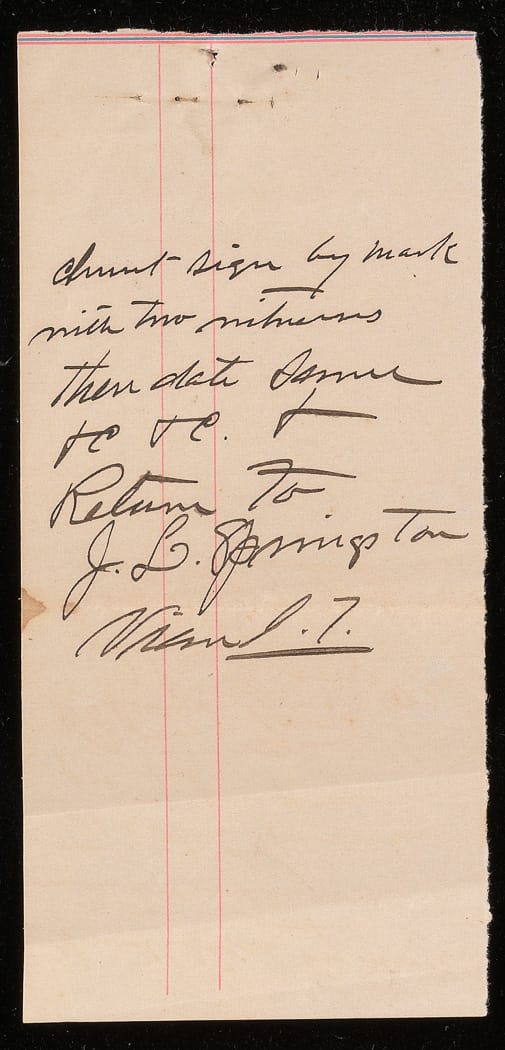 sign by mark
with two witnesses
then date same
&C &C. &
Return To
J. L. Springston
Vian I. T.